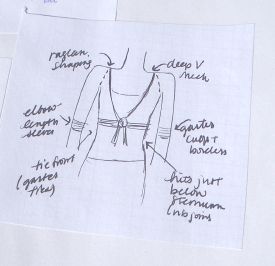 raglan
shaping
deep V
neck
elbow
length
sleeve
garter
cuffs +
borders
tie front
(garter
ties)
hits just
below
sternum